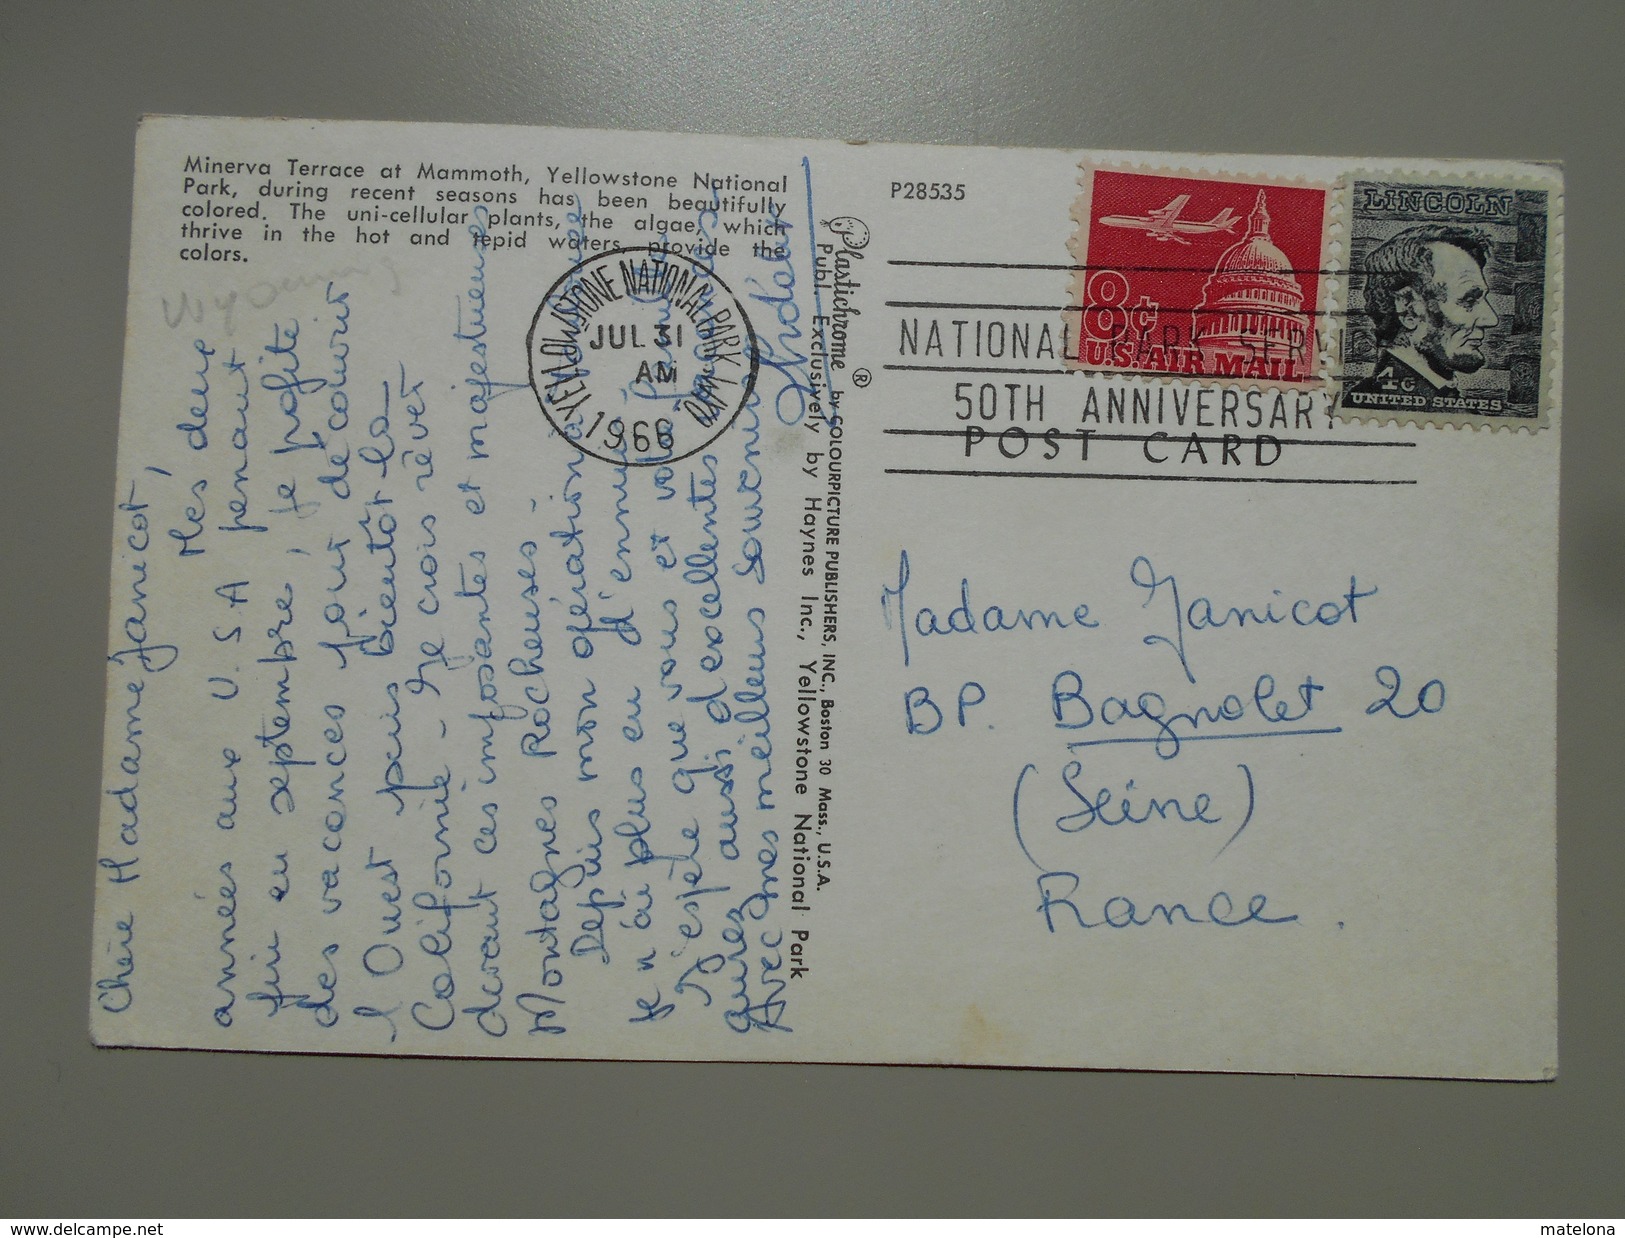 Minerva Terrace at Mammoth, Yellowstone National
Park, during recent seasons has been beautifully
colored. The uni-cellular plants, the algae, which
thrive in the hot and tepid waters, provide the
colors.
Wyoming
Chère Madame Janicot,
Mes deux
années aux U.S.A prenant
fin en septembre, je profite
des vacances pour découvrir
l'Ouest puis bientôt la
Californie - Je crois rêver
devant ces imposantes et majestueuses
Montagnes Rocheuses -
Depuis mon opération
je n'ai plus eu d'ennuis
J'espère que vous et votre
aurez aussi d'excellentes
Avec mes meilleurs souvenirs
YELLOWSTONE NATIONAL PARK WYO
JUL 31
AM
1966
Plastichrome ® by COLOURPICTURE PUBLISHERS, INC., Boston 30 Mass., U.S.A.
Publ. Exclusively by Haynes Inc., Yellowstone National Park
P28535
8¢
U.S. AIR MAIL
LINCOLN
4c
UNITED STATES
NATIONAL PARK SERVICE
50TH ANNIVERSARY
POST CARD
Madame Janicot
BP. Bagnolet 20
(Seine)
France.
www.delcampe.net
matelona